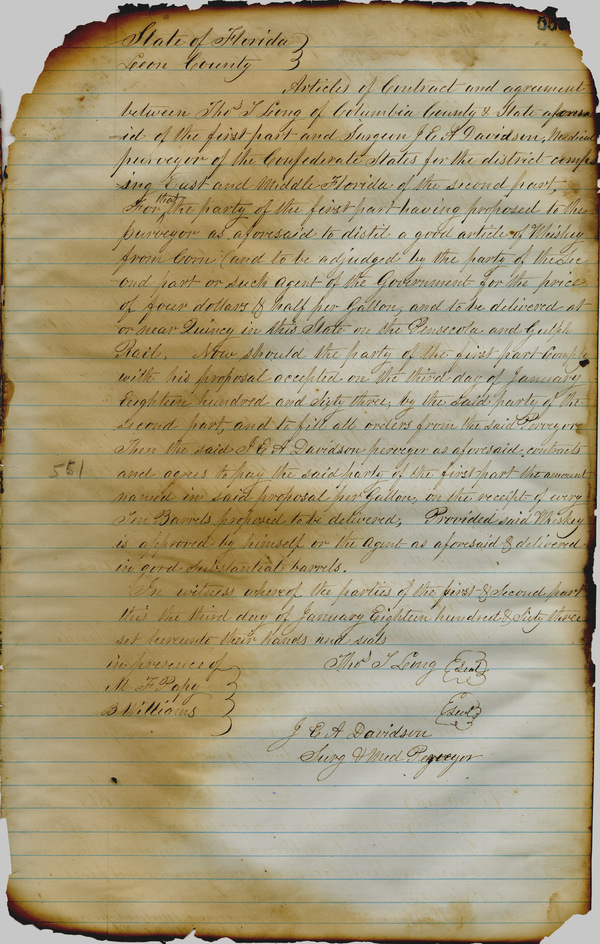 State of Florida
Leon County
Articles of Contract and agreement
between Thos T Long of Columbia County & State aforesa
id of the first part and Surgeon J E A Davidson, Medical
purveyor of the Confederate States for the district compri
sing East and Middle Florida of the second part,
For that the party of the first part having proposed to the
purveyor as aforesaid to distil a good article of Whiskey
from Corn (and to be adjudged by the party of the Sec
ond part or such Agent of the Government for the price
of four dollars & half per Gallon, and to be delivered at
or near Quincy in this State on the Penscola and Gulph
Rail. Now should the party of the first part Comply
with his proposal accepted on the third day of January
Eighteen hundred and Sixty three, by the said party of the
second part, and to fill all orders from the said Perveyor
Then the said J E A Davidson perveyor as aforesaid contracts
and agrees to pay the said party of the first part the amount
551
named in said proposal per Gallon, on the receipt of every
Ten Barrels proposed to be delivered, Provided said Whiskey
is approved by himself or the Agent as aforesaid & delivered
in good substantial barrels.
In witness whereof the parties of the first & Second part
this the third day of January Eighteen hundred & Sixty three
set hereunto their hands and seals
in presence of
M F Papy
B Williams
Thos T Long Seal
Seal
J E A Davidson
Surg & Med Perveyor